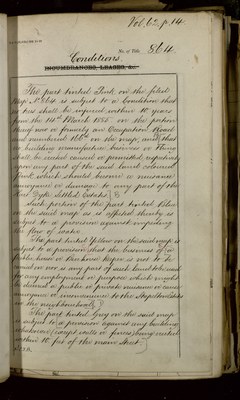 Vol. 6a p. 14.
No. of Title 864
Conditions.
INCUMBRANCES, LEASES, &c.
The part tinted Pink on the filed
Map No. 864 is subject to a condition that
no tree shall be injured within 10 years
from the 14th March 1855 on the portion
thereof now or formerly an Occupation Road
and numbered 16 on the map, and that
no building manufacture business or thing
shall be erected caused or permitted
upon any part of the said land coloured
pink which should become a nuisance
annoyance or damage to any part of the
Settled Estates
Such portion of the part tinted Blue
on the said map as is affected thereby is
subject to a provision against impeding
the flow of water.
The part tinted Yellow on the said map is
subject to a provision that the business of a
public house or Beerhouse Keeper is not to be
carried on nor is any part of such land to be used
for any employment or purpose which might
be deemed a public or private nuisance or cause
annoyance or inconvenience to the Stapleton Estate
or the neighbourhood
The part tinted Grey on the said map
is subject to a provision against any building
whatsoever (except walls or fences) being erected
within 10 feet of the main Street.